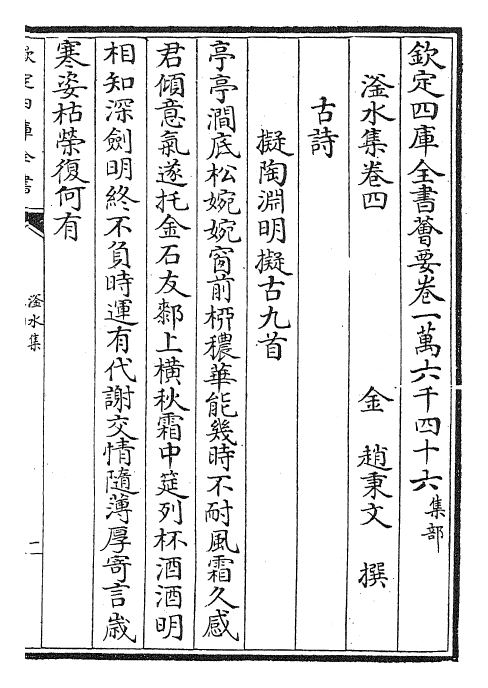 欽定四庫全書薈要卷一萬六千四十六集部
滏水集卷四　金　趙秉文　撰
古詩
擬陶淵明擬古九首
亭亭澗底松婉婉窗前栁穠華能幾時不耐風霜久感
君傾意氣遂托金石友鄴上橫秋霜中筵列杯酒酒明
相知深劍明終不負時運有代謝交情隨薄厚寄言歳
寒姿枯榮復何有
欽定四庫全書
滏水集
二